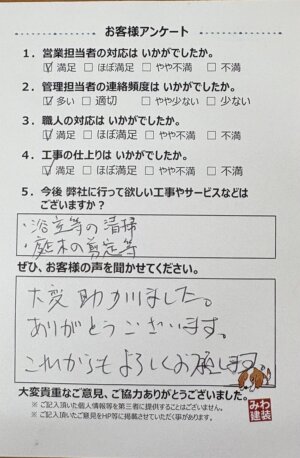 お客様アンケート
1．営業担当者の対応は いかがでしたか。
☑ 満足 □ ほぼ満足 □ やや不満 □ 不満
2．管理担当者の連絡頻度は いかがでしたか。
☑ 多い □ 適切 □ やや少ない □ 少ない
3．職人の対応は いかがでしたか。
☑ 満足 □ ほぼ満足 □ やや不満 □ 不満
4．工事の仕上りは いかがでしたか。
☑ 満足 □ ほぼ満足 □ やや不満 □ 不満
5．今後 弊社に行って欲しい工事やサービスなどは
ございますか？
・浴室等の清掃
・庭木の剪定等
ぜひ、お客様の声を聞かせてください。
大変助かりました。
ありがとうございます。
これからもよろしくお願します
大変貴重なご意見、ご協力ありがとうございました。
※ ご記入頂いた個人情報等を第三者に提供することはございません。
※ ご記入頂いたご意見をHP等に掲載させていただく事があります。
みわ
建装